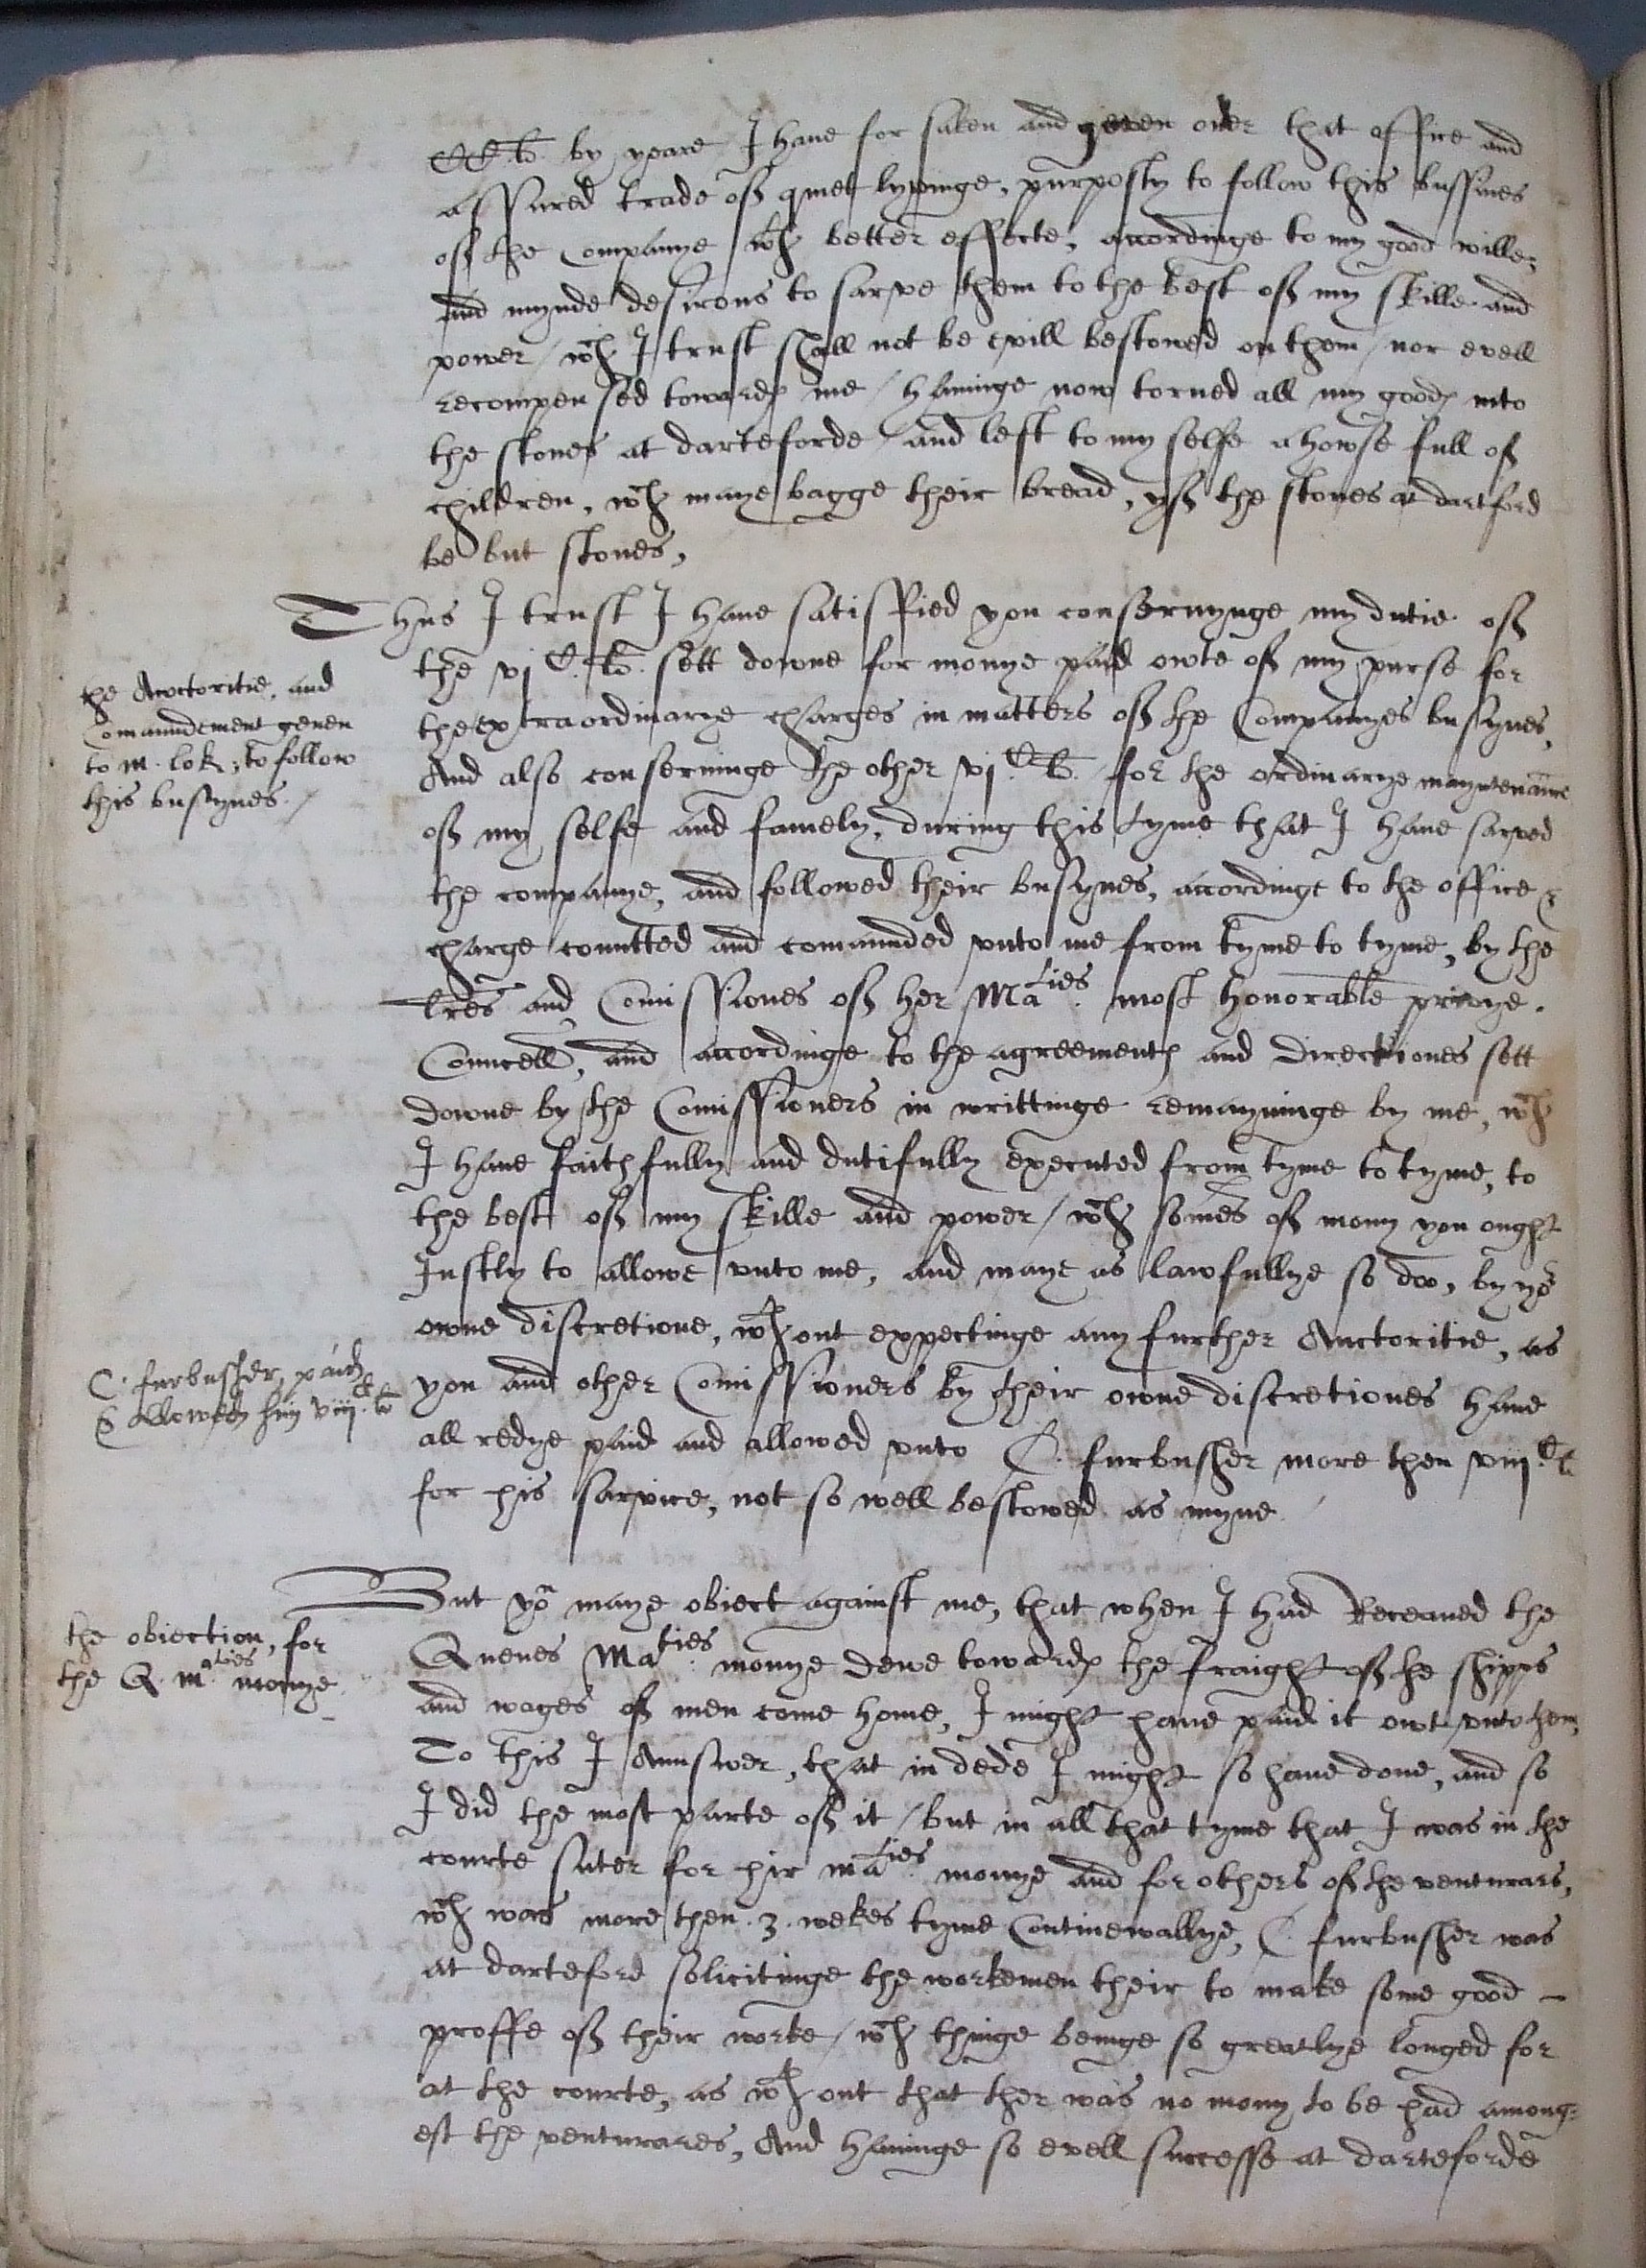 CC li by yeare I have for saken and geven over that office and
assured trade of quiet lyvinge, purposly to follow this bussines
of the Companye wch better effecte, accordinge to my good wille,
and mynde desirous to sarve them to the best of my skille and
power / wch I trust shall not be evill bestowed on them / nor evell
recompensed towards me / havinge now torned all my goods into
the stones at darteforde / and left to my selfe a howse full of
children, wch maye bagge their bread, yf the stones at dartford
be but stones,
Thus I trust I have satisffied you consernynge my dutie of
the Auctoritie, and
Comaundement geven
to m. lok, to follow
this busynes /
the vj C. li. sett downe for monye paid owte of my purse for
the extraordinarye charges in matters of the Companyes busynes,
And also conserninge the other vj C. li. / for the ordinarye mayntenance
of my selfe and famely, during this tyme that I have sarved
the companye, and followed their busynes, accordinge to the office &
charge comitted and comaunded unto me from tyme to tyme, by the
lres and Comissiones of her Maties. most honorable privye.
Councell, and accordinge to the agreements and directiones sett
downe by the Comissioners in writtinge remayninge by me, wch
I have faithfully and dutifully executed from tyme to tyme, to
the best of my skille and power / wch somes of mony you ought
Justly to allowe unto me, and maye as lawfullye so doo, by yor
owne discretione, wthout expectinge any further Auctoritie, as
C. furbusher, paid
& allowed him viij C. li
you and other Comissioners by their owne discretiones have
all redye paid and allowed unto C. furbusher more then viij C. li
for his sarvice, not so well bestowed as myne /
But you maye obiect against me, that when I had Receaved the
the obiection, for
the Q. maties monye.
Quenes Maties. monye dewe towards the fraight of the shipps
and wages of men come home, I might have paid it owt unto them,
To this I Aunswer, that in dede I might so have done, and so
I did the most parte of it / but in all that tyme that I was in the
courte suter for hir maties. monye and for others of the venturars,
wch was more then .3. wekes tyme Continewallye, C. furbusher was
at darteford solicitinge the workemen their to make some good –
proffe of their worke / wch thinge beinge so greatlye longed for
at the courte, as wthout that ther was no mony to be had among=
est the venturares, And havinge so evell successe at darteforde